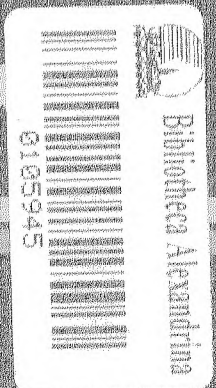 Bibliotheca Alexandrina
0105945